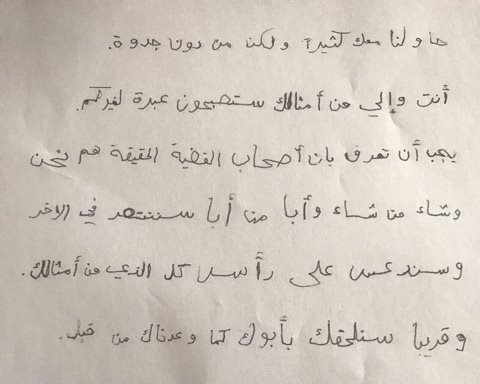 حاولنا معك كثيراً ولكن من دون جدوة.
أنت وإلي من أمثالك ستصبحون عبرة لغيركم.
يجب أن تعرف بان أصحاب القضية الحقيقة هم نحن
وشاء من شاء وأبا من أبا سننتصر في الاخر
وسندعس على رأس كل الذي من أمثالك.
وقريبا سنلحقك بأبوك كما وعدناك من قبل.